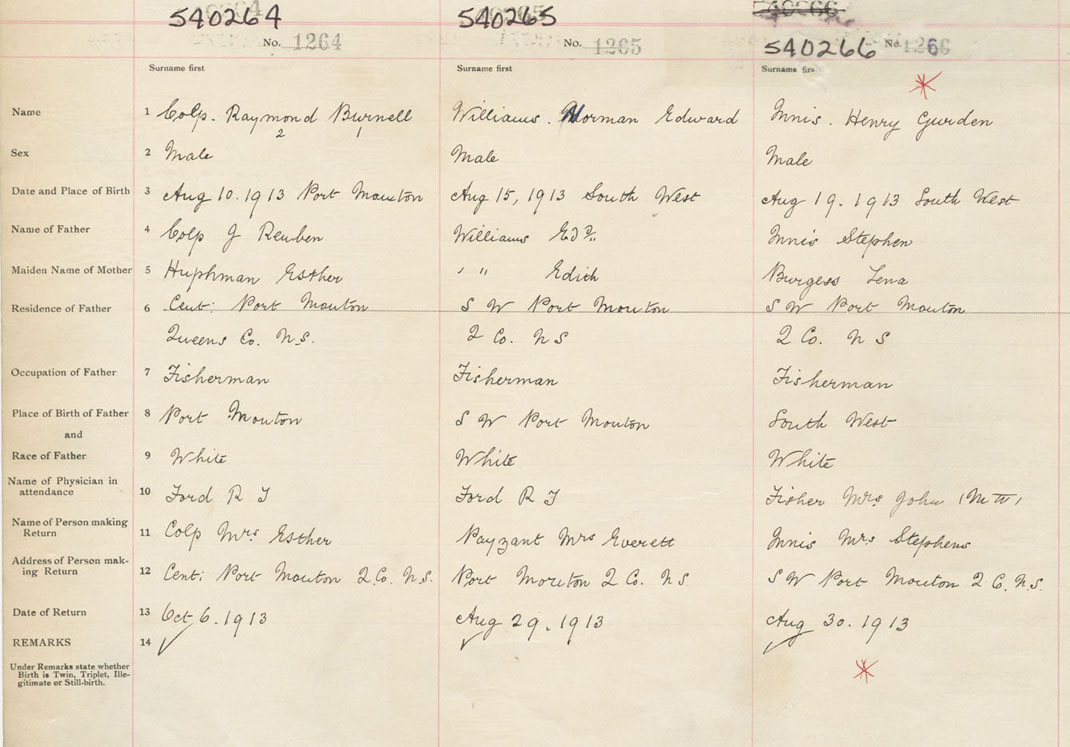 540264 540265 540266
No. 1264 No. 1265 No. 1266
Surname first Surname first Surname first
Name 1 Colp. Raymond Burnell Williams. Norman Edward Innis. Henry Gurden
2 1
Sex 2 Male Male Male
Date and Place of Birth 3 Aug 10. 1913 Port Mouton Aug 15, 1913 South West Aug 19. 1913 South West
Name of Father 4 Colp J Reuben Williams Edd. Innis Stephen
Maiden Name of Mother 5 Huphman Esther " " Edith Burgess Lena
Residence of Father 6 Cent: Port Mouton S W Port Mouton S W Port Mouton
Queens Co. N.S. Q Co. N S Q Co. N S
Occupation of Father 7 Fisherman Fisherman Fisherman
Place of Birth of Father 8 Port Mouton S W Port Mouton South West
and
Race of Father 9 White White White
Name of Physician in
attendance 10 Ford R J Ford R J Fisher Mrs John
Name of Person making
Return 11 Colp Mrs Esther Payzant Mrs Everett Innis Mrs Stephens
Address of Person mak-
ing Return 12 Cent: Port Mouton Q. Co. N.S. Port Mouton Q Co. N S S W Port Mouton Q C. N.S.
Date of Return 13 Oct 6. 1913 Aug 29. 1913 Aug 30. 1913
REMARKS 14
Under Remarks state whether
Birth is Twin, Triplet, Ille-
gitimate or Still-birth.